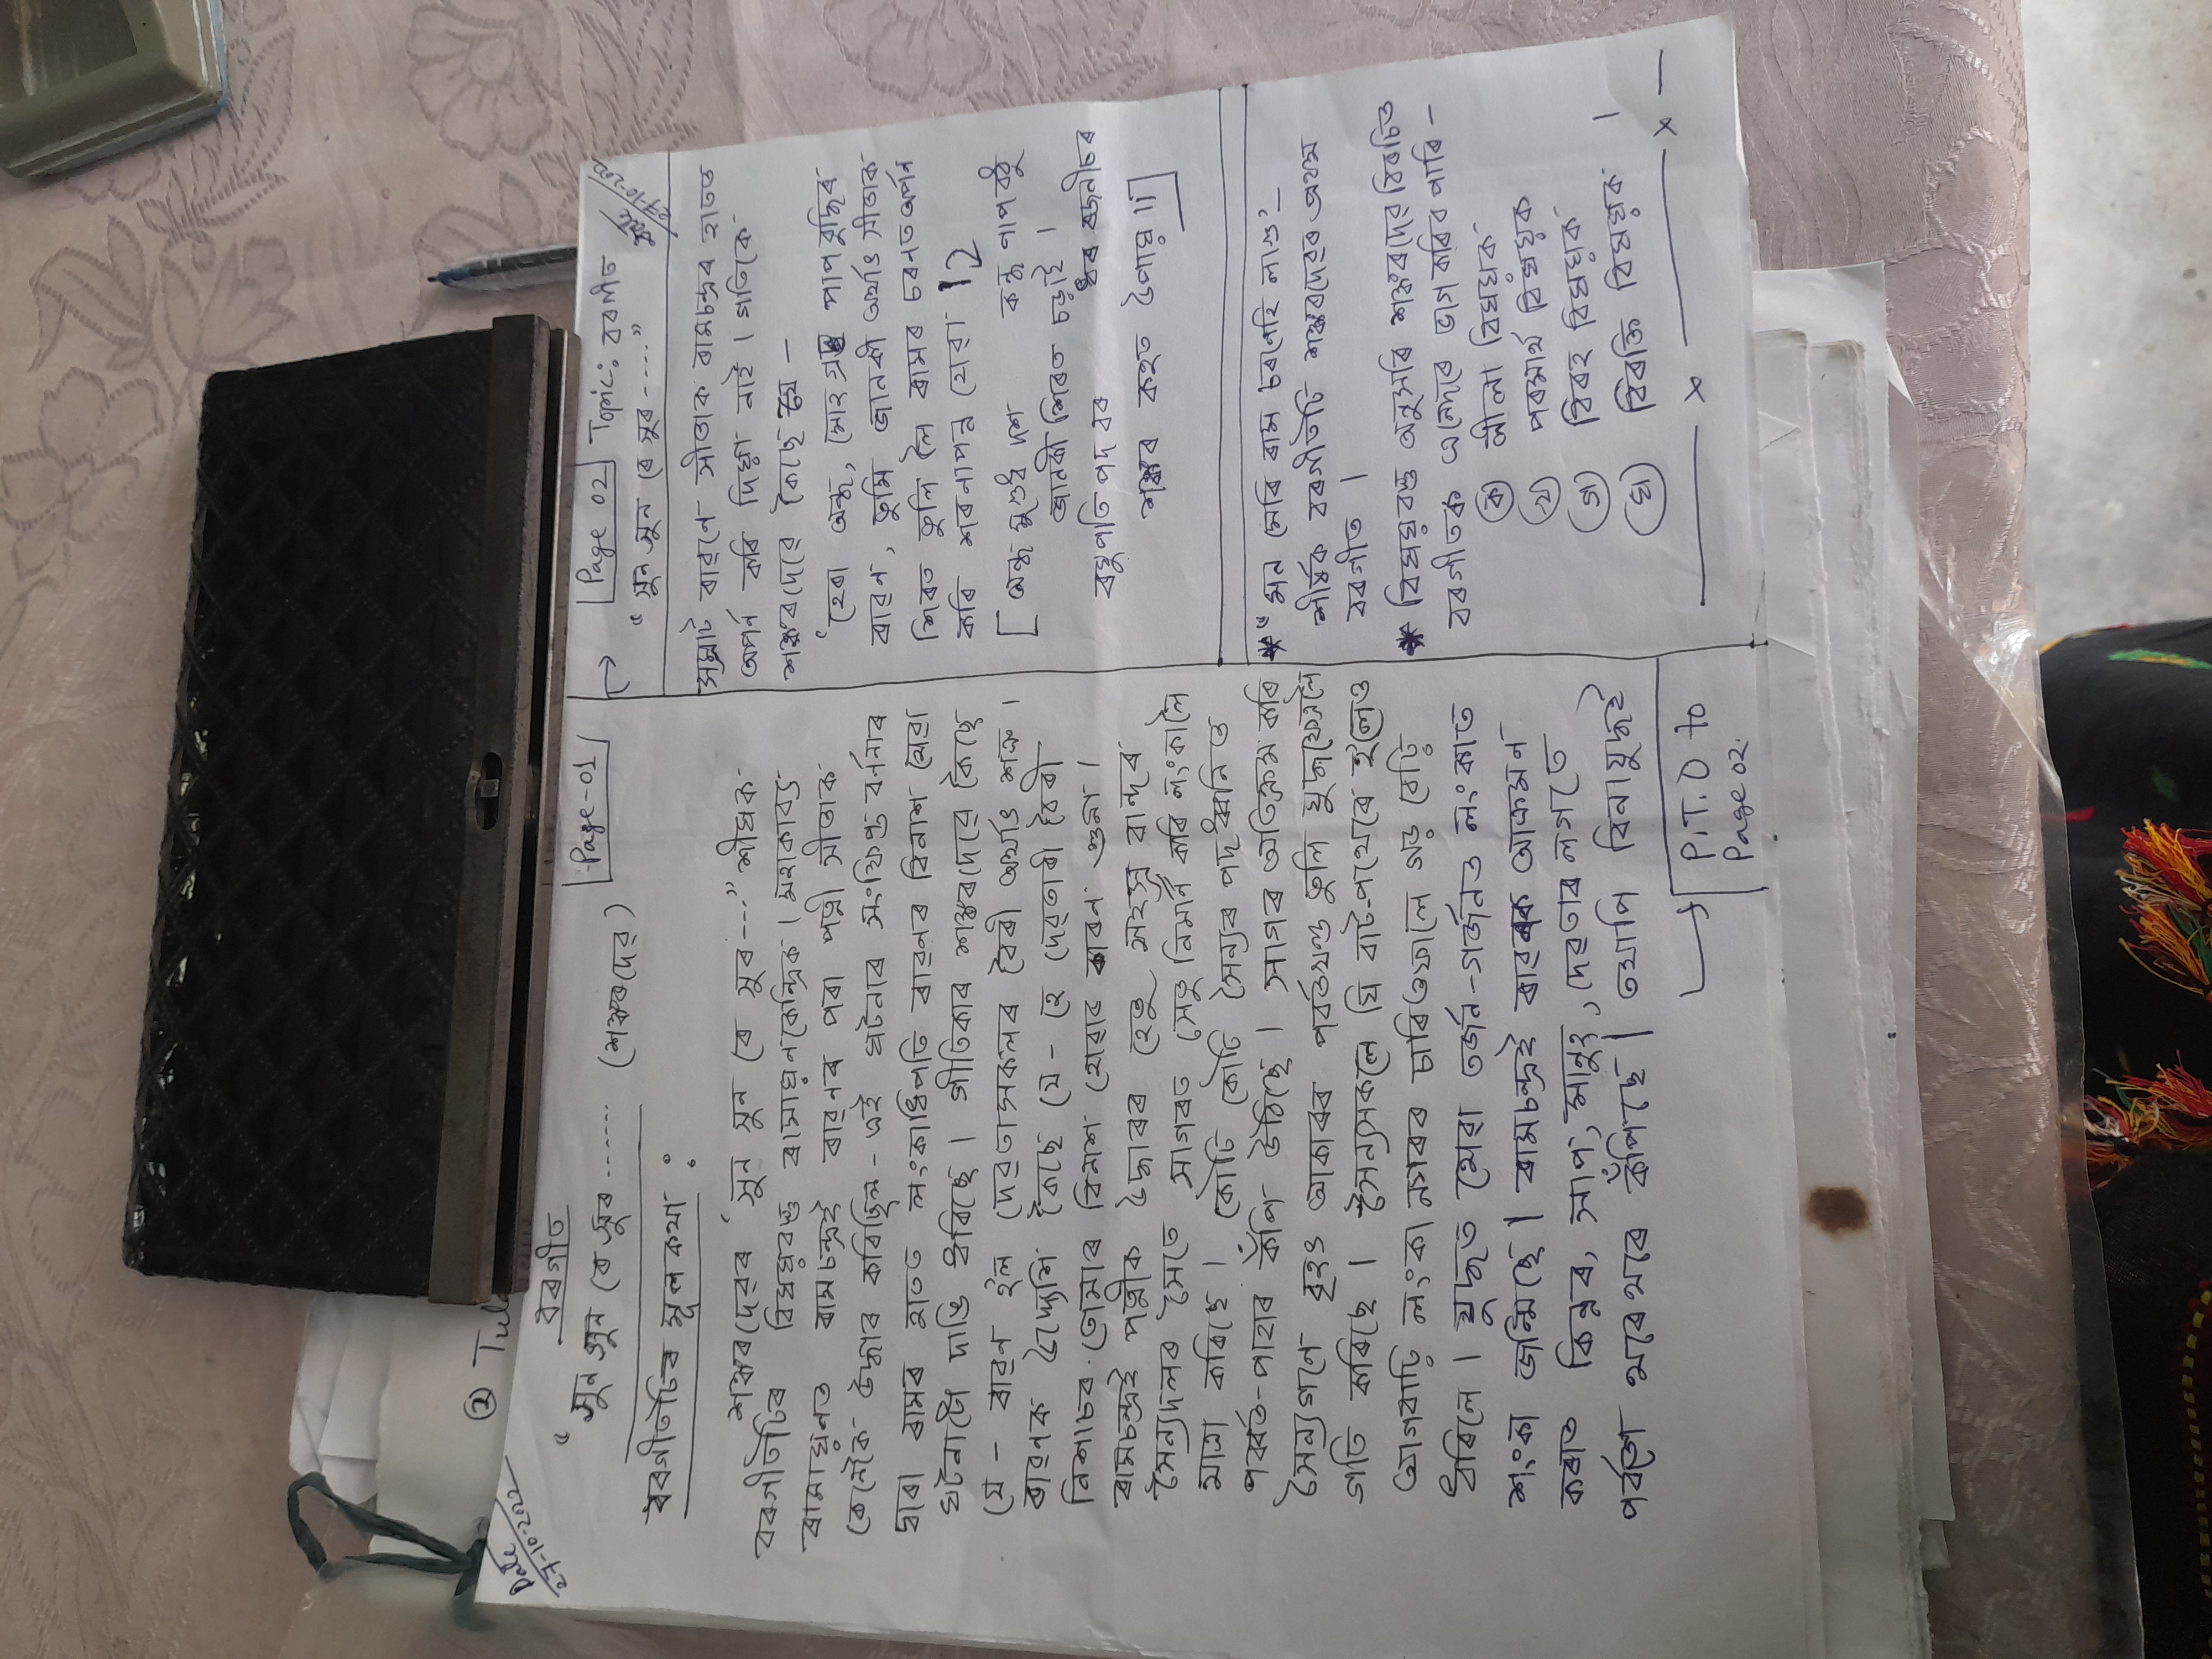 ② Tul
Date
27-10-202
বৰগীত
Page-01
“ শুন শুন ৰে সুৰ ...... (শঙ্কৰদেৱ)
বৰগীতটিৰ মূলকথা :
শঙ্কৰদেৱৰ ‘ শুন শুন ৰে সুৰ ---” শীৰ্ষক
বৰগীতটিৰ বিষয়বস্তু ৰামায়ণকেন্দ্ৰিক। মহাকাব্য
ৰামায়ণত ৰামচন্দ্ৰই ৰাৱণৰ পৰা পত্নী সীতাক
কেনেকৈ উদ্ধাৰ কৰিছিল - এই ঘটনাৰ সংক্ষিপ্ত বৰ্ণনাৰ
দ্বাৰা ৰামৰ হাতত লংকাধিপতি ৰাৱণৰ বিনাশ হোৱা
ঘটনাটো দাঙি ধৰিছে। গীতিকাৰ শঙ্কৰদেৱে কৈছে
যে - ৰাৱণ হ'ল দেৱতাসকলৰ বৈৰী অৰ্থাৎ শত্ৰু।
ৰাৱণক উদ্দেশ্যি কৈছে যে - হে দেৱতাৰী বৈৰী
নিশাচৰ তোমাৰ বিনাশ হোৱাৰ কাৰণ শুনা।
ৰামচন্দ্ৰই পত্নীক উদ্ধাৰৰ হেতু সহস্ৰ বান্দৰ
সৈন্যদলৰ সৈতে সাগৰত সেতু নিৰ্মাণ কৰি লংকালৈ
যাত্ৰা কৰিছে। কোটি কোটি সৈন্যৰ পদধ্বনিত
পৰ্বত-পাহাৰ কঁপি উঠিছে। সাগৰ অতিক্ৰম কৰি
সৈন্যগণে বৃহৎ আকাৰৰ পৰ্বতখণ্ড তুলি যুদ্ধক্ষেত্ৰলৈ
গতি কৰিছে। সৈন্যসকলে যি বাট-পথেৰে হ'লেও
আগবাঢ়ি লংকা নগৰৰ চাৰিওফালে গড় বেঢ়ি
ধৰিলে। যুদ্ধত হোৱা তৰ্জন-গৰ্জনত লংকাত
শংকা জন্মিছে। ৰামচন্দ্ৰই ৰাৱণক আক্ৰমণ
কৰাত কিন্নৰ, সাপ, মানুহ, দেৱতাৰ লগতে
পৰ্বতো থৰেথৰে কঁপিছে। তথাপি বিনাযুদ্ধই
P.T.O to
Page 02
Page 02
Topic: বৰগীত
Date
27-10-202
“ শুন শুন ৰে সুৰ ----”
সম্ৰাট ৰাৱণে সীতাক ৰামচন্দ্ৰৰ হাতত
অৰ্পণ কৰি দিয়া নাই। গতিকে
শঙ্কৰদেৱে কৈছে যে -
‘হেৰা অন্ধ, মোহগ্ৰস্ত পাপবুদ্ধিৰ
ৰাৱণ, তুমি জানকী অৰ্থাৎ সীতাক
শিৰত তুলি লৈ ৰামৰ চৰণত অৰ্পণ
কৰি শৰণাপন্ন হোৱা।
[ অন্ধ মুগুধ দশ কন্ধ পাপ বন্ধু
জানকী শিৰত চড়াই।
ৰঘুপতি পদ বৰ ধৰ ৰজনীচৰ
শঙ্কৰ কহত উপায়॥]
* “মন মেৰি ৰাম চৰণহি লাগু’—
শীৰ্ষক বৰগীতটি শঙ্কৰদেৱৰ প্ৰথম
বৰগীত।
* বিষয়বস্তু অনুসৰি শঙ্কৰদেৱ বিৰচিত
বৰগীতক এনেদৰে ভাগ কৰিব পাৰি -
ক লীলা বিষয়ক
খ পৰমাৰ্থ বিষয়ক
গ বিৰহ বিষয়ক
ঘ বিৰক্তি বিষয়ক।
— x — x —